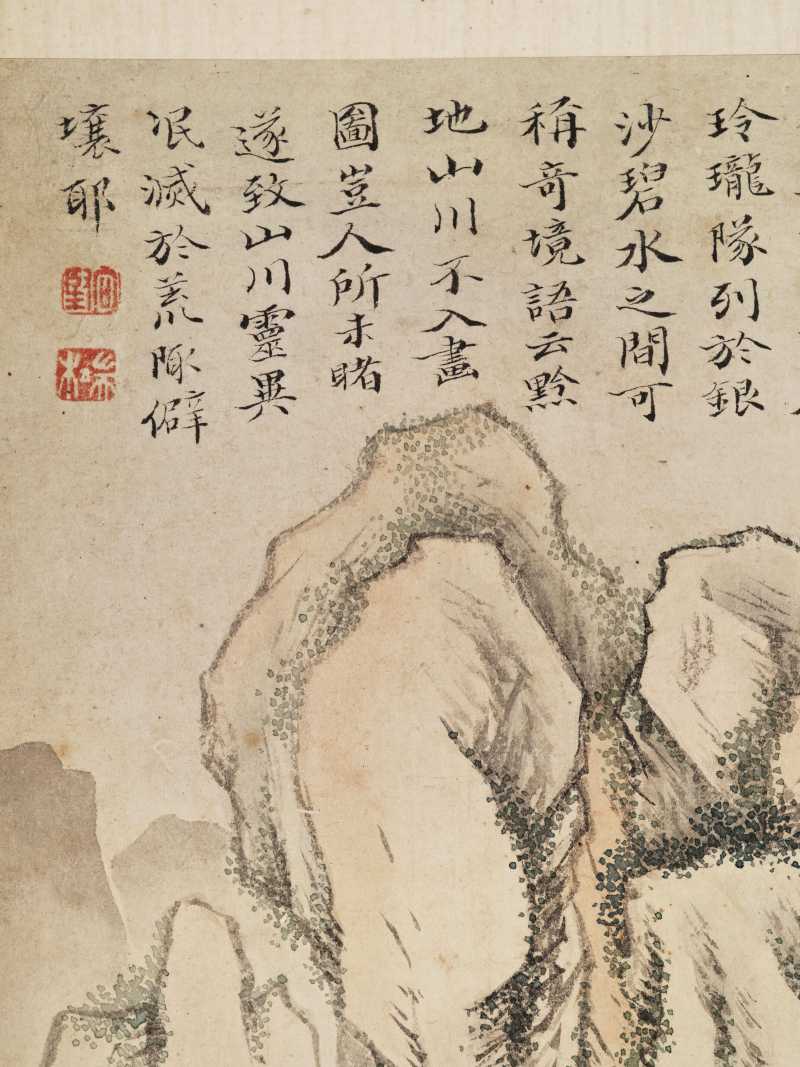 玲瓏隊列於銀
沙碧水之間可
稱奇境語云黔
地山川不入畫
圖豈人所未睹
遂致山川靈異
泯滅於荒陬僻
壤耶